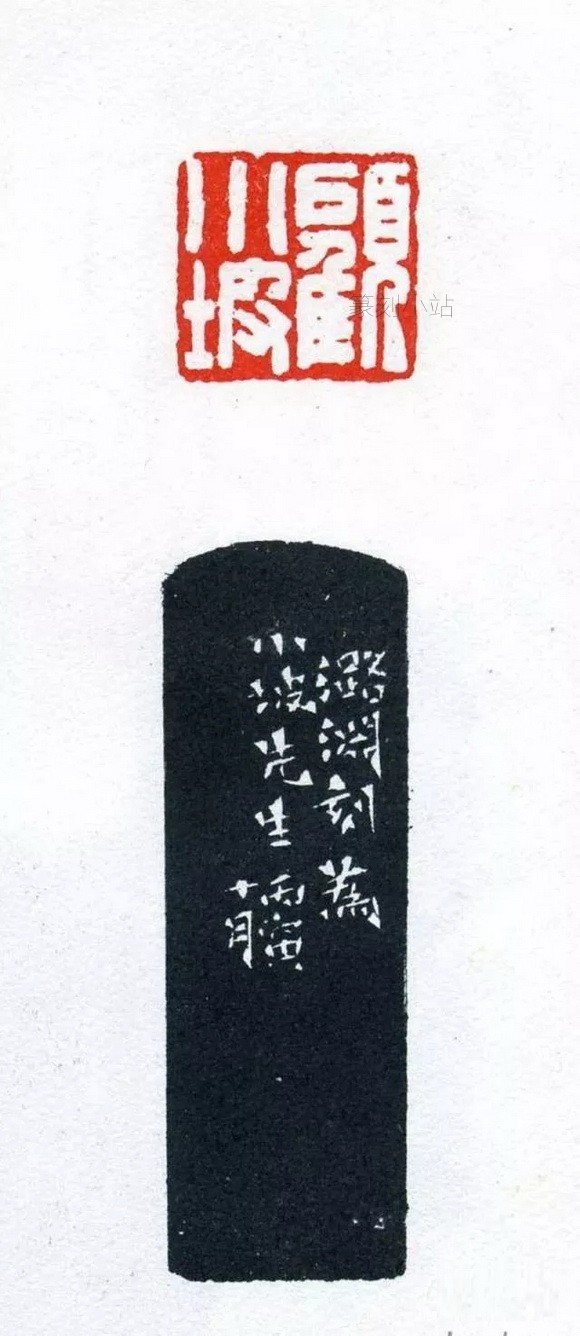 顧
小坡
篆刻小站
潞淵刻為
小坡先生 丙寅
十月